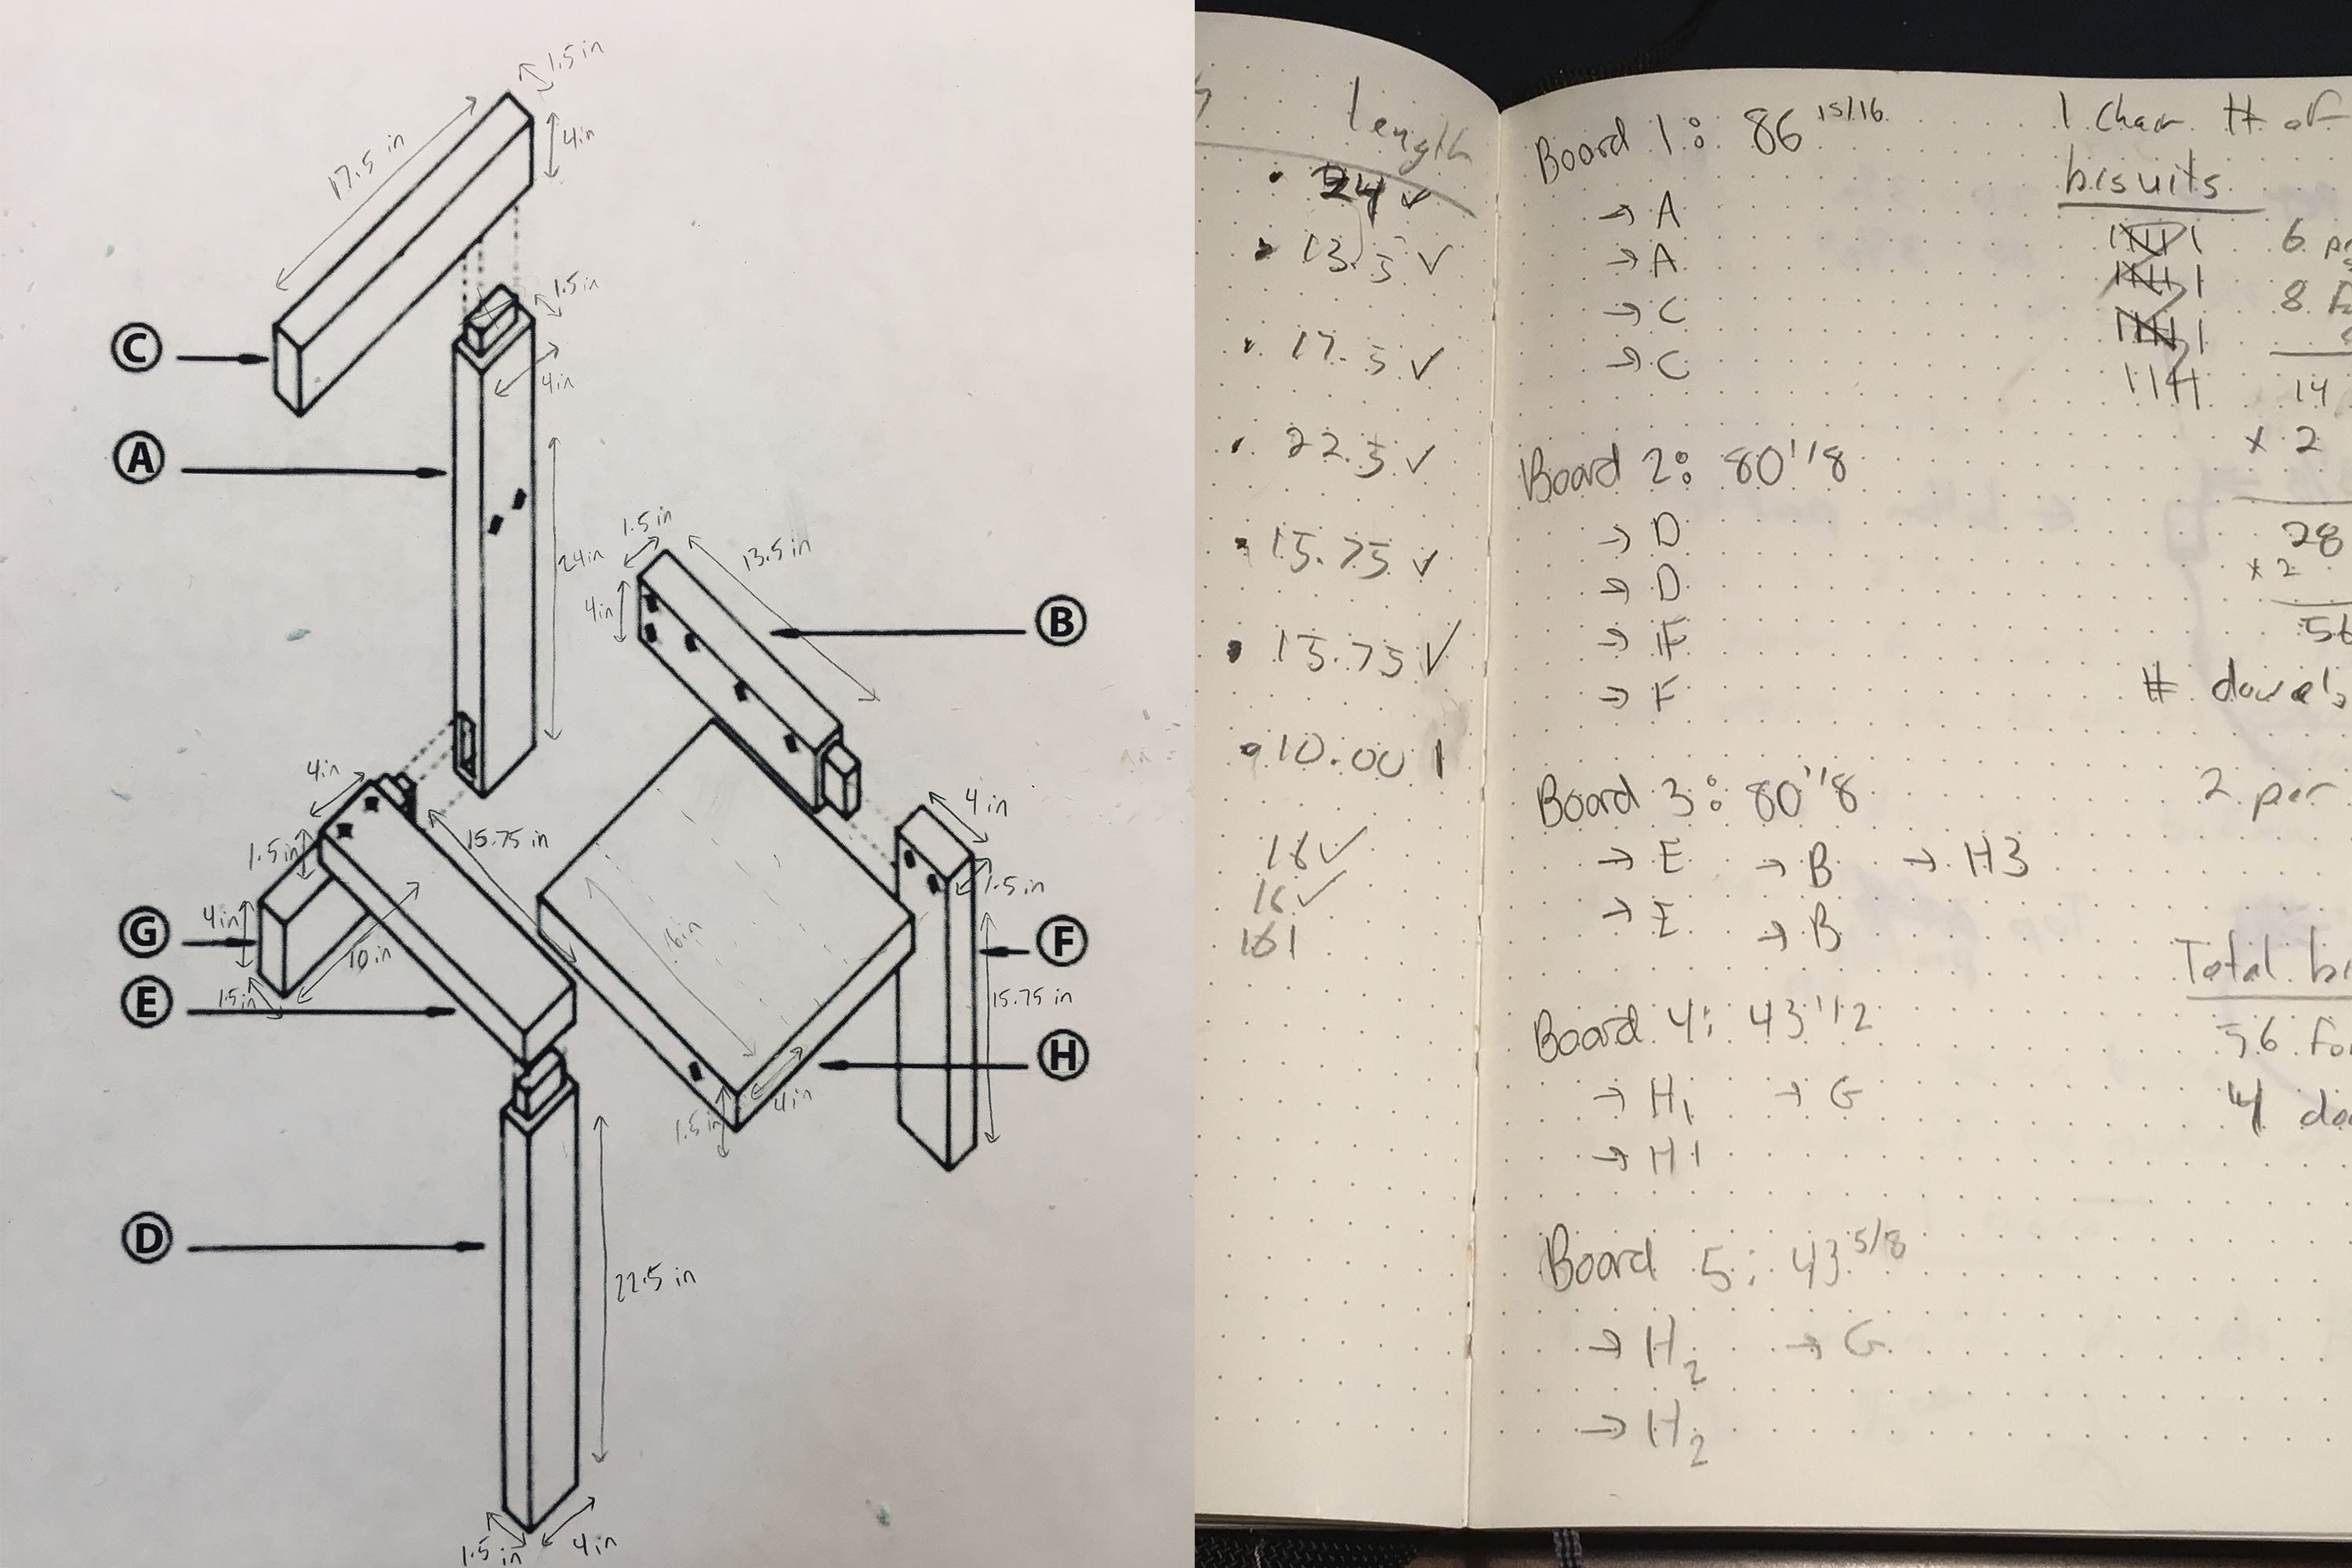 1.5 in
17.5 in
4in
1.5in
C
4in
A
24in
1.5 in
13.5 in
4in
B
4in
15.75 in
4 in
1.5in
1.5in
4in
G
10 in
16in
F
1.5in
E
15.75 in
H
4in
1.5in
D
22.5 in
1.5 in
4in
length
24 ✓
13.5 ✓
17.5 ✓
22.5 ✓
15.75 ✓
15.75 ✓
10.00 1
16 ✓
16 ✓
161
Board 1: 86 15/16
→ A
→ A
→ C
→ C
Board 2: 80 1/8
→ D
→ D
→ F
→ F
Board 3: 80 1/8
→ E → B → H3
→ E → B
Board 4: 43 1/2
→ H1 → G
→ H1
Board 5: 43 5/8
→ H2 → G
→ H2
1 Chair # of
bisuits
6
8
14
x 2
28
x 2
56
# dowels
2 per
Total
56 for
4